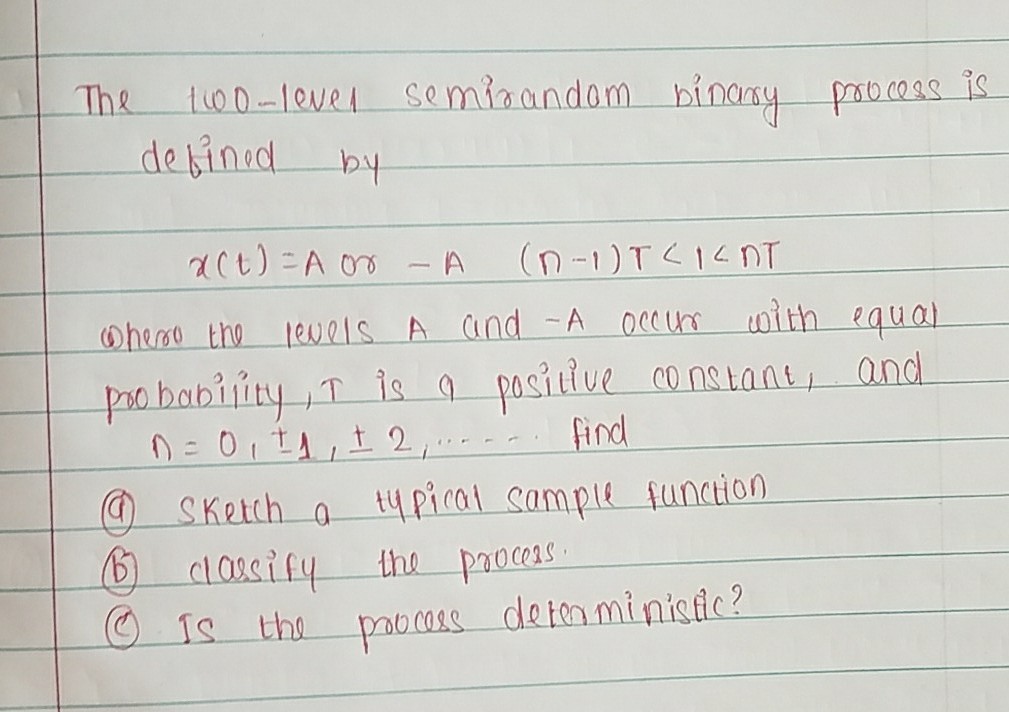 The two-level semirandom binary process is
defined by
x(t) = A or - A (n-1)T < 1 < nT
where the levels A and -A occur with equal
probability, T is a positive constant, and
n = 0, ±1, ± 2, ...... find
(a) sketch a typical sample function
(b) classify the process.
(c) Is the process deterministic?